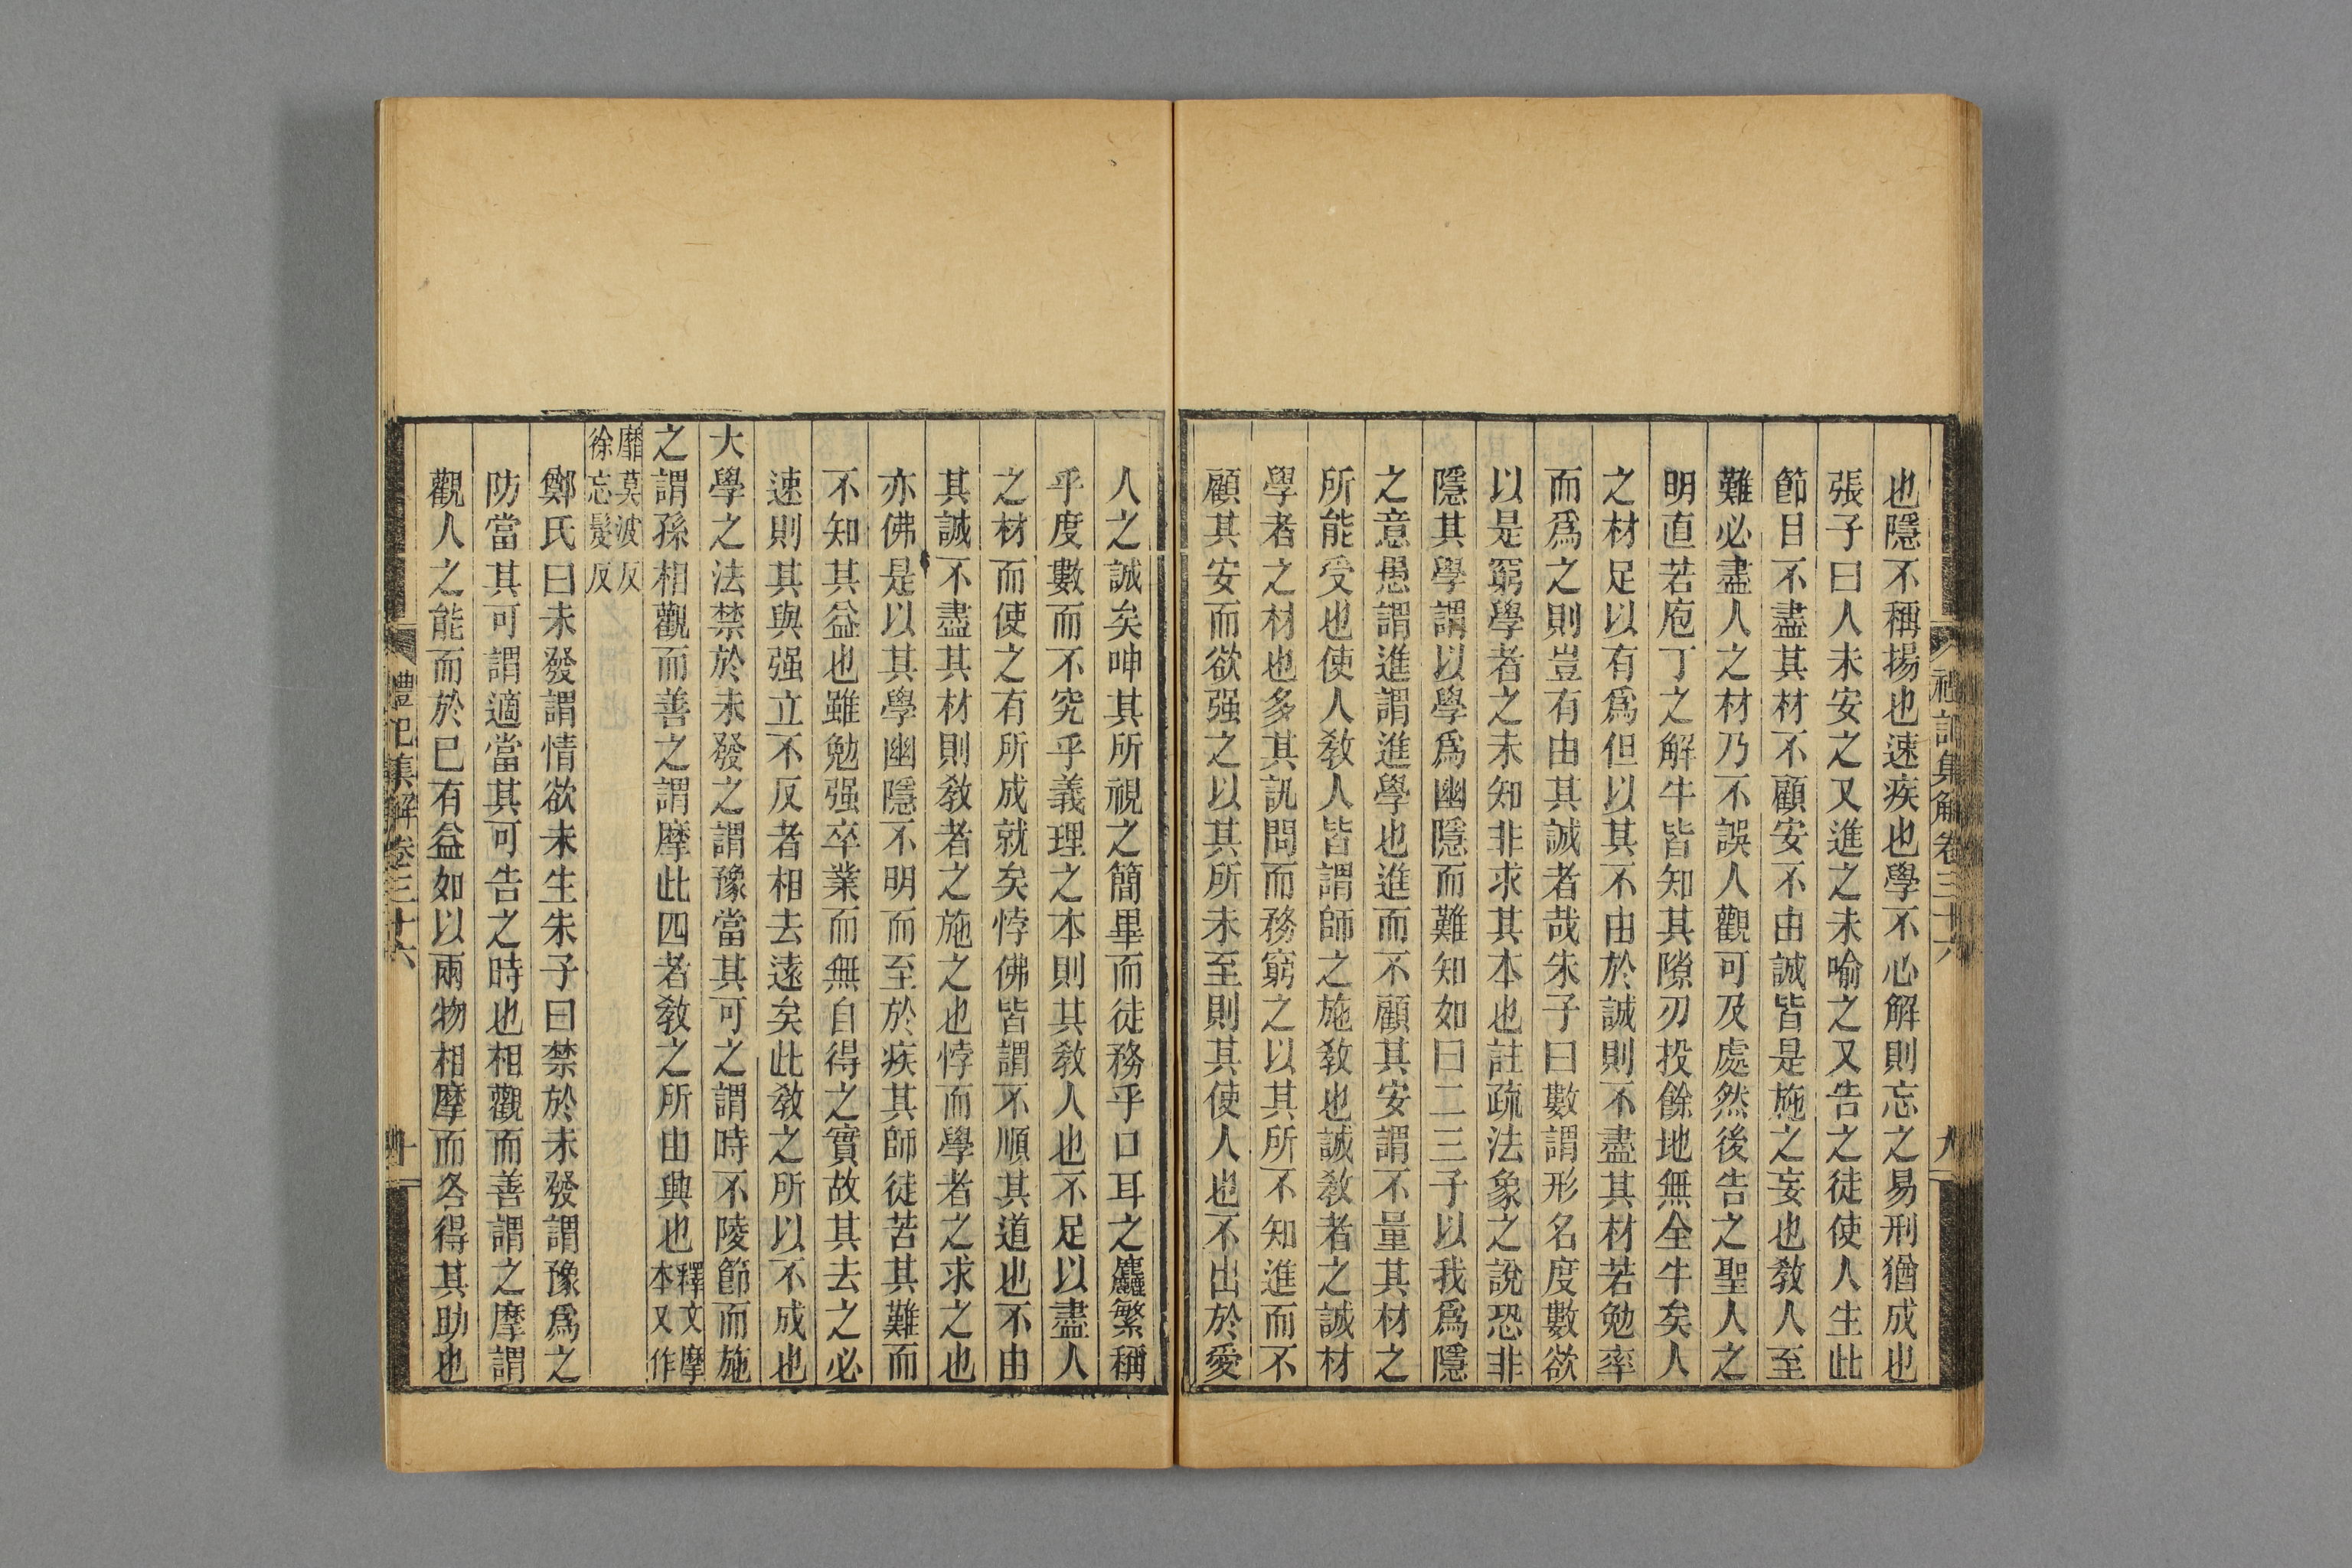 禮記集解卷三十六
九
也隱不稱揚也速疾也學不心解則忘之易刑猶成也
張子曰人未安之又進之未喻之又告之徒使人生此
節目不盡其材不顧安不由誠皆是施之妄也敎人至
難必盡人之材乃不誤人觀可及處然後告之聖人之
明直若庖丁之解牛皆知其隙刃投餘地無全牛矣人
之材足以有爲但以其不由於誠則不盡其材若勉率
而爲之則豈有由其誠者哉朱子曰數謂形名度數欲
以是窮學者之未知非求其本也註疏法象之說恐非
隱其學謂以學爲幽隱而難知如曰二三子以我爲隱
之意愚謂進謂進學也進而不顧其安謂不量其材之
所能受也使人敎人皆謂師之施敎也誠敎者之誠材
學者之材也多其訊問而務窮之以其所不知進而不
顧其安而欲强之以其所未至則其使人也不出於愛
人之誠矣呻其所視之簡畢而徒務乎口耳之麤繁稱
乎度數而不究乎義理之本則其敎人也不足以盡人
之材而使之有所成就矣悖佛皆謂不順其道也不由
其誠不盡其材則敎者之施之也悖而學者之求之也
亦佛是以其學幽隱不明而至於疾其師徒苦其難而
不知其益也雖勉强卒業而無自得之實故其去之必
速則其與强立不反者相去遠矣此敎之所以不成也
大學之法禁於未發之謂豫當其可之謂時不陵節而施
之謂孫相觀而善之謂摩此四者敎之所由興也釋文摩
本又作
靡莫波反
徐忘髲反
鄭氏曰未發謂情欲未生朱子曰禁於未發謂豫爲之
防當其可謂適當其可告之時也相觀而善謂之摩謂
觀人之能而於已有益如以兩物相摩而各得其助也
禮記集解卷三十六
十